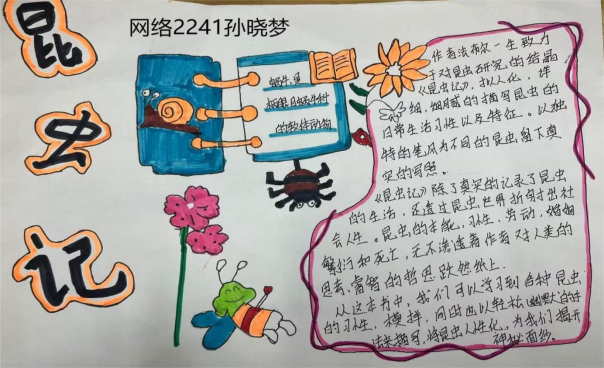 网络2241孙晓梦
昆
虫
记
蜗牛,是
的软体动物
作者法布尔一生致力
于对昆虫研究的结晶
《昆虫记》,拟人化,详
细,细腻的描写昆虫的
日常生活习性以及特征。以独
特的笔风为不同的昆虫留下真
实的写照。
《昆虫记》除了真实的记录了昆虫
的生活,还透过昆虫世界折射出社
会人生。昆虫的本能,习性,劳动,婚姻
繁衍和死亡,无不渗透着作者对人类的
思考,睿智的哲思跃然纸上.
从这本书中,我们可以学习到各种昆虫
的习性,模样,同时也以轻松幽默的
法来描写,将昆虫人性化,为我们揭开
神秘面纱。